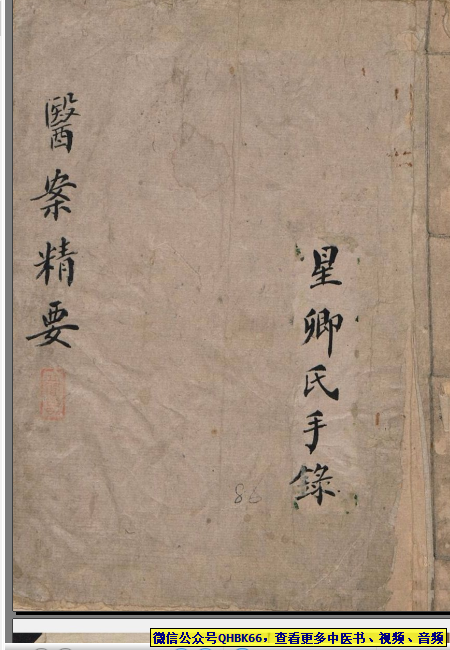 醫案精要
星卿氏手錄
86
微信公众号QHBK66，查看更多中医书、视频、音频